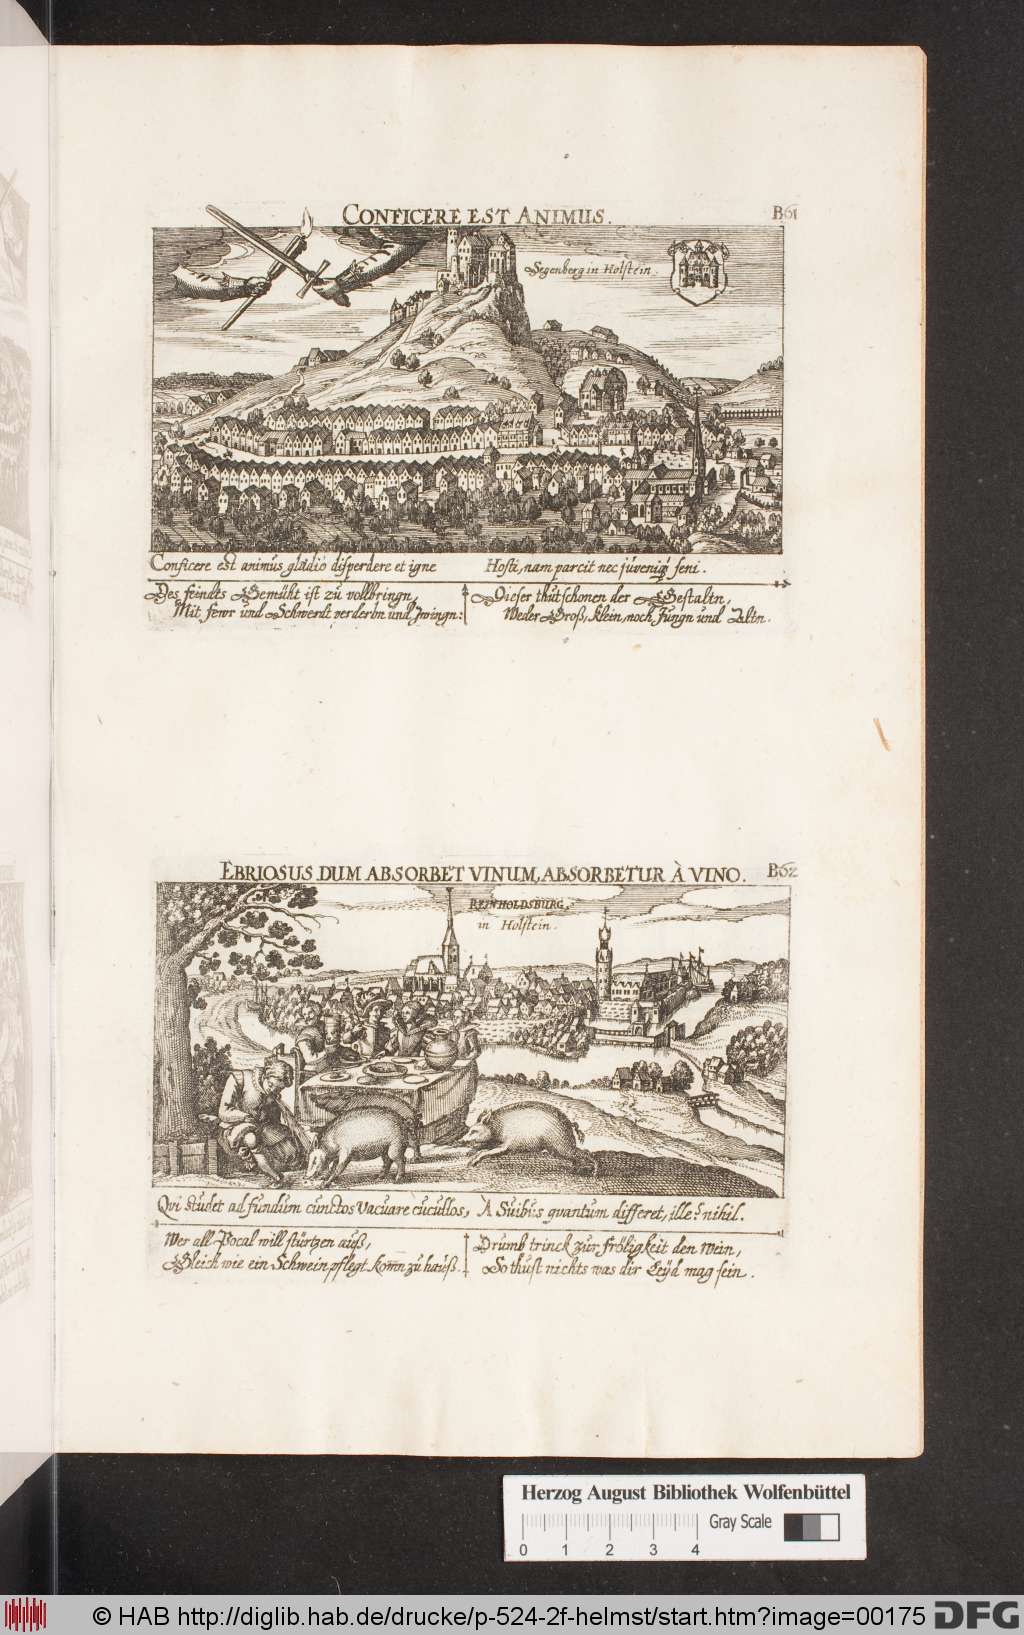 CONFICERE EST ANIMUS.
B61
Segenberg in Holstein.
Conficere est animus gladio disperdere et igne Hoste, nam parcit nec juveniq; seni.
Des feindts Gemüht ist zu vollbringn,
Mit fewr und Schwerdt verderbn und zwingn:
Dieser thut schonen der Gestaltn,
Weder Groß, klein, noch Jungn und Altn.
EBRIOSUS DUM ABSORBET VINUM, ABSORBETUR À VINO.
B62
REINHOLDSBURG.
in Holstein.
Qvi studet ad fundum cunctos vacuare cucullos, À Suibus qvantum differet, ille? nihil.
Wer all Pocal will stürtzen auß,
Gleich wie ein Schwein pflegt kom̄n zu hauß.
Drumb trinck zur fröligkeit den Wein,
So thust nichts was dir Leÿd mag sein.
Herzog August Bibliothek Wolfenbüttel
Gray Scale
0 1 2 3 4
© HAB http://diglib.hab.de/drucke/p-524-2f-helmst/start.htm?image=00175 DFG